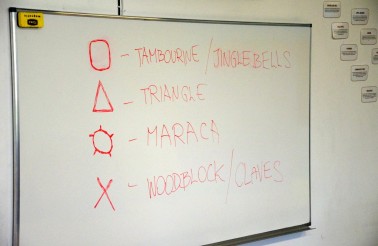 - TAMBOURINE / JINGLEBELLS
- TRIANGLE
- MARACA
- WOODBLOCK / CLAVES